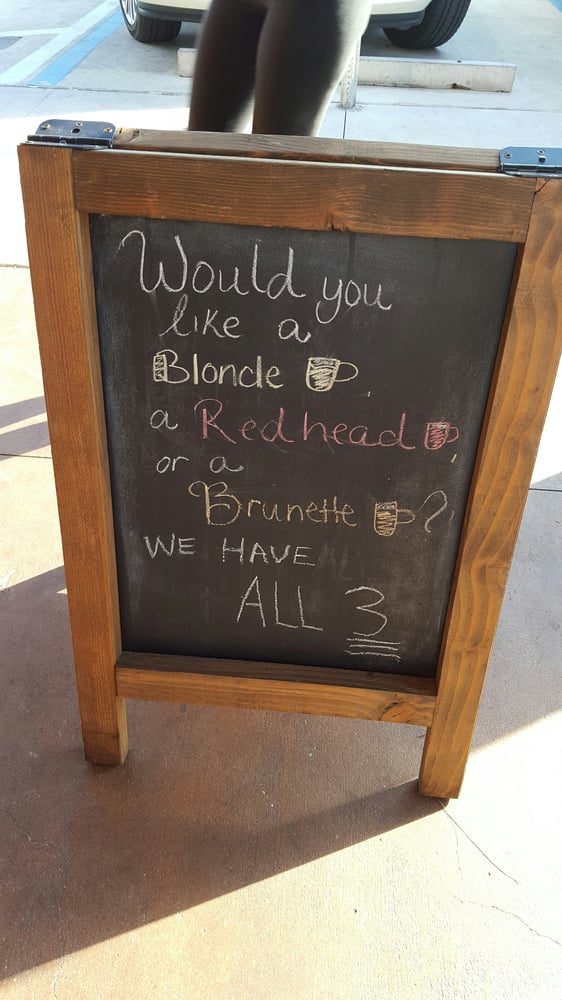 Would you
like a
Blonde,
a Redhead,
or a
Brunette ?
WE HAVE
ALL 3